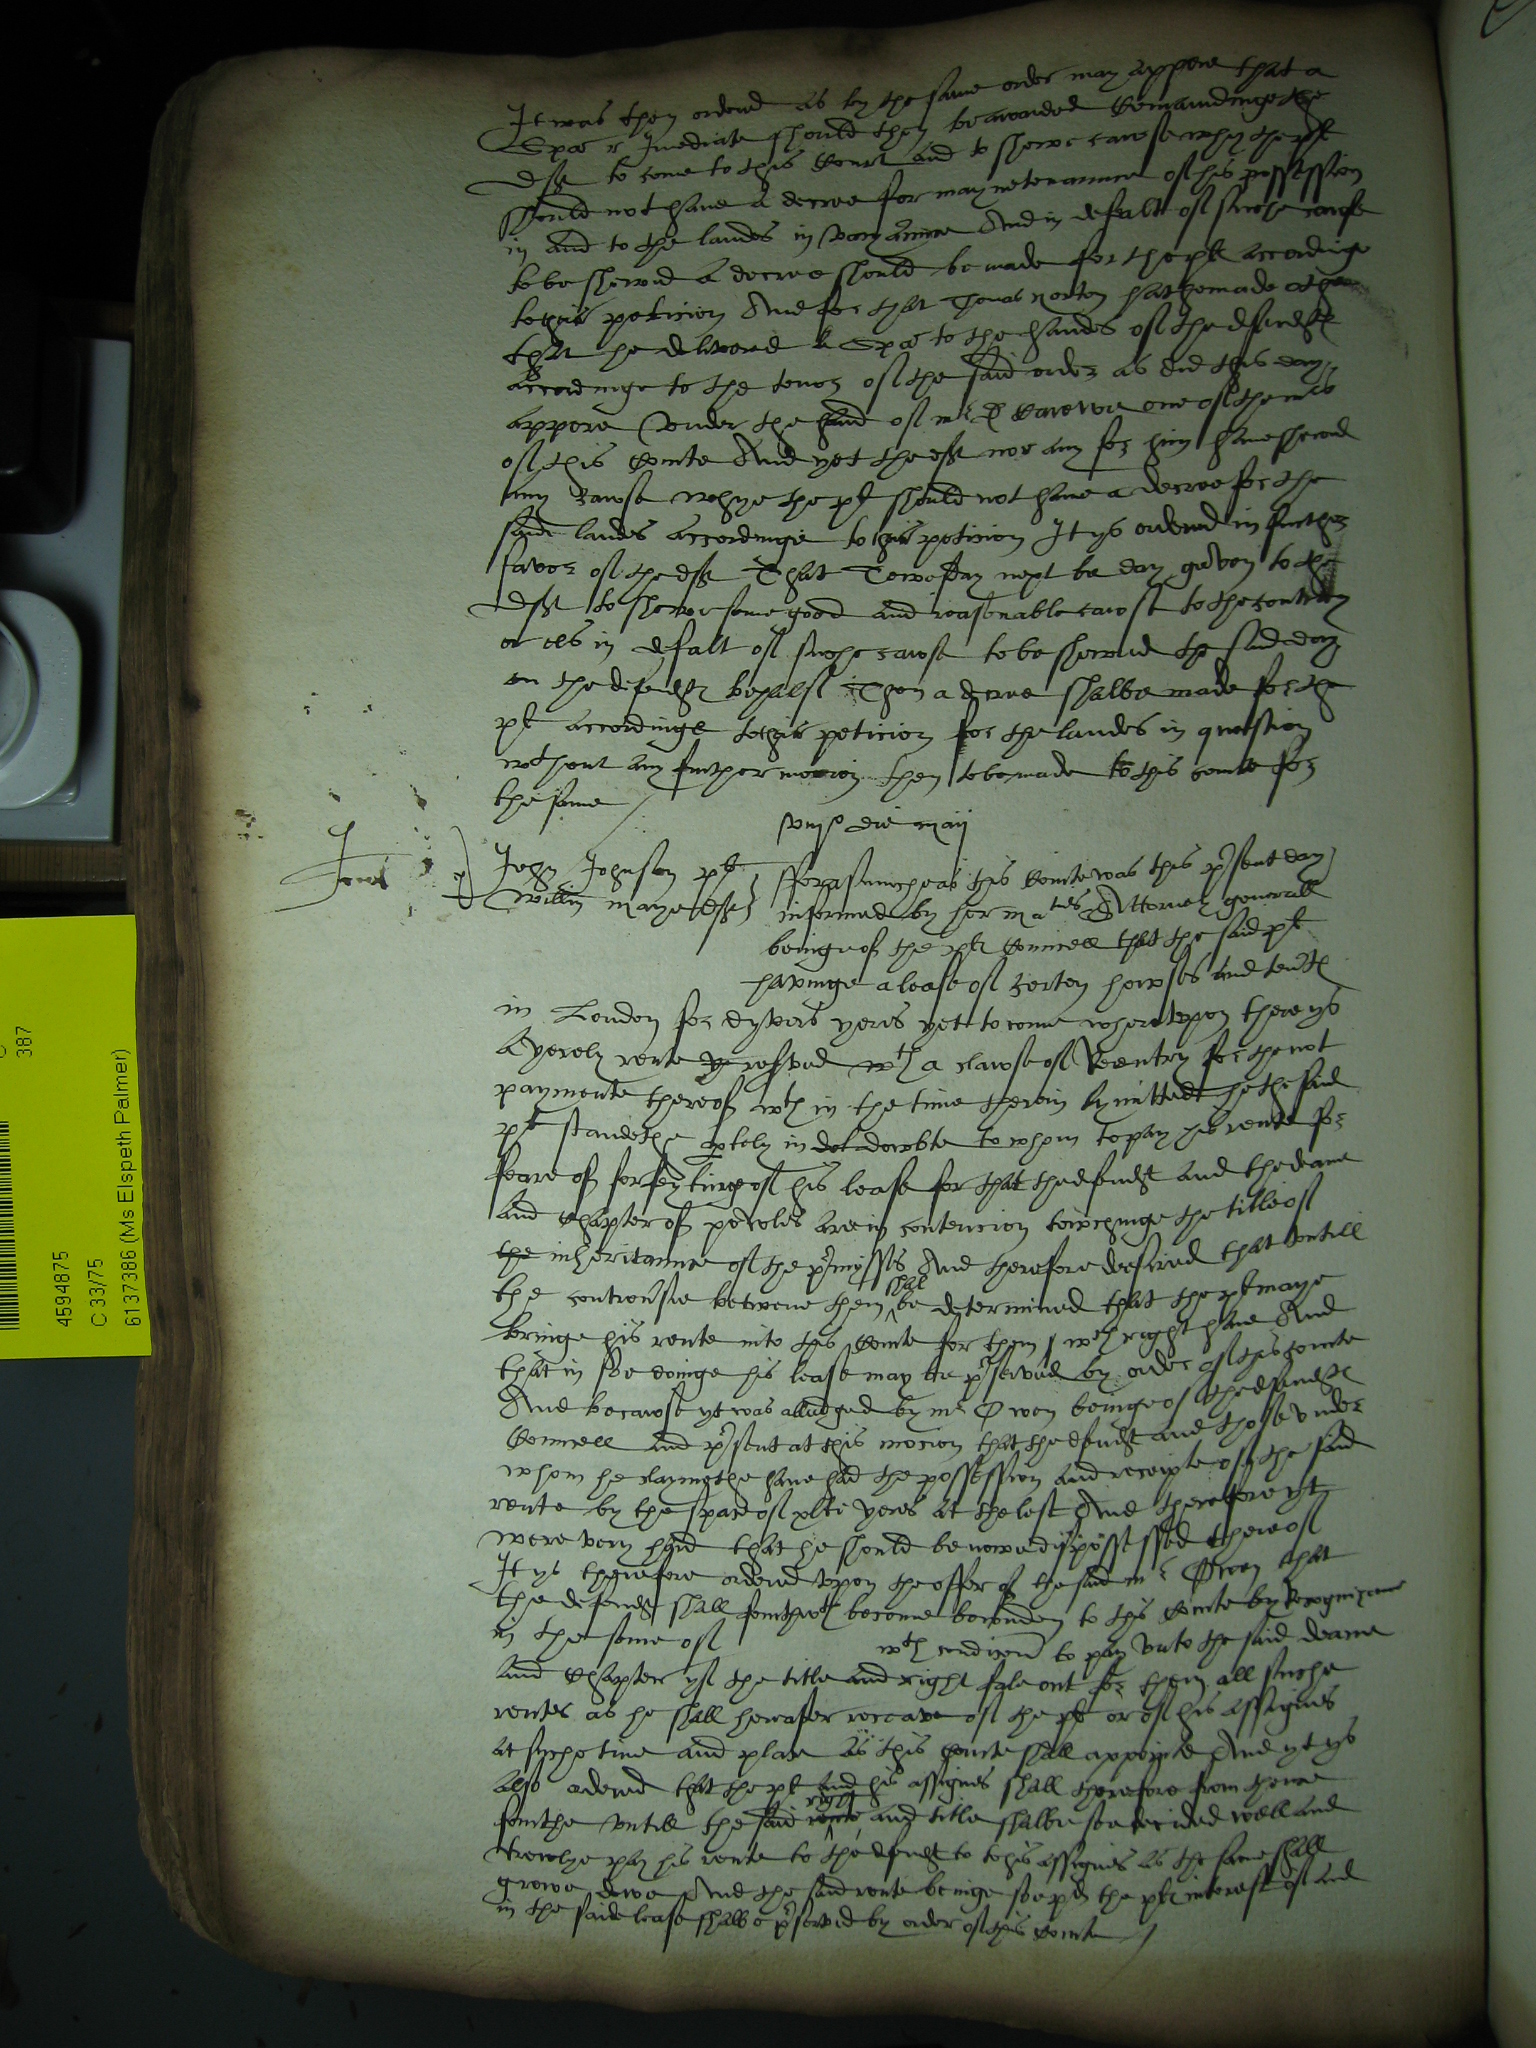 It was then ordered as by the same order may appere that a
Spa r Imediate should then be awarded Comaundinge the
deft to come to this Court and to shewe cawse why the plt
should not have a decree for mayntenaunce of his possession
in and to the landes in varyaunce And in defalte of suche cawse
to be shewed a decree should be made for the plt accordinge
to his peticion And for that Thomas Norton hathe made othe
that he delivered a Spa to the handes of the defendt
accordinge to the tenor of the said order as did this day
appere vnder the hand of mr D Carewe one of the mrs
of this Courte And yet the deft nor any for him have shewed
any cawse whye the plt should not have a decree for the
said landes accordinge to his peticion It ys ordered in further
favor of the deft That Tewesday next be day geven to the
deft to shewe some good and reasonable cawse to the contrary
or els in defalt of suche cawse to be shewed the said day
on the defendtes behalf Then a decree shalbe made for the
plt accordinge to his peticion for the landes in question
wthout any further mocion then to be made to this courte for
the same
die maij
Jones
John Johnson plt
Willm maye deft
fforasmuche as this Courte was this pesent day
informed by her maties Attorney generall
beinge of the pltes Councell that the said plt
havinge a lease of certen howses and tentes
in London for dyvers yeres yet to come wherevpon there ys
a yerely rente reserved wth a clawse of Reentry for the not
paymente thereof wth in the time therein lymitted he the said
plt standethe in dowbte to whom to pay his rente for
feare of forfeytinge of his lease for that the defendt and the deane
and Chapter of powles are in contencion towchinge the title of
the inheritaunce of the premisses And therefore desired that vntill
the controuersie betwene them shal be determined that the plt maye
bringe his rente into this Courte for them wch right have And
that in soe doinge his lease may be preserved by order of this courte
And becawse yt was alledged by mr Owen beinge of the defendtes
Councell and present at this mocion that the defendt and those vnder
whom he claymethe have had the possession and receipte of the said
rente by the space of xlti yeres at the lest And therefore yt
were very hard that he should be nowe dispossessed thereof
It ys therefore ordered vpon the offer of the said mr Owen that
the defendt shall fourthwth become bounden to this Courte by Recognizaunce
in the some of wth condicon to pay vnto the said deane
and Chapter yf the title and right fale out for them all suche
rentes as he shall herafter receave of the plt or of his assignes
at suche time and place as this Courte shall appointe And yt ys
also ordered that the plt and his assignes shall therefore from thence
fourthe vntill the said rente right and title shalbe soe decided well and
trewlye pay his rente to the defendt to to his assignes as the same shall
growe dewe And the said rente beinge soe pd the pltes interest of and
in the saide lease shalbe preserved by order of this Courte
387
4594875
C 33/75
6137386 (Ms Elspeth Palmer)